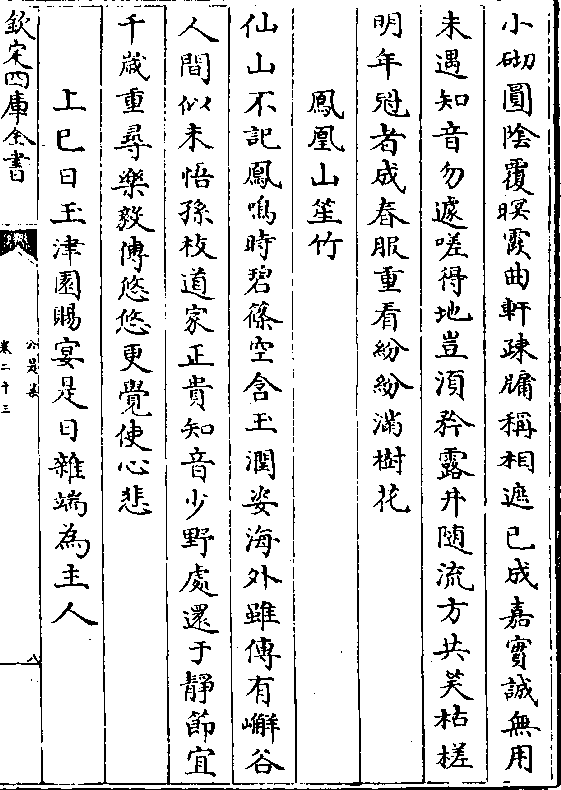 小砌圓陰覆暝霞曲軒疎牖稱相遮已成嘉實誠無用
未遇知音勿遽嗟得地豈須矜露井隨流方共笑枯槎
明年冠者成春服重看紛紛滿樹花
鳳凰山笙竹
仙山不記鳳鳴時碧篠空含玉潤姿海外雖傳有嶰谷
人間似未悟孫枝道家正貴知音少野處還于靜節宜
千歲重尋樂教傳悠悠更覺使心悲
上巳日玉津園賜宴是日雜端為主人
欽定四庫全書
公是集
卷二十三
八